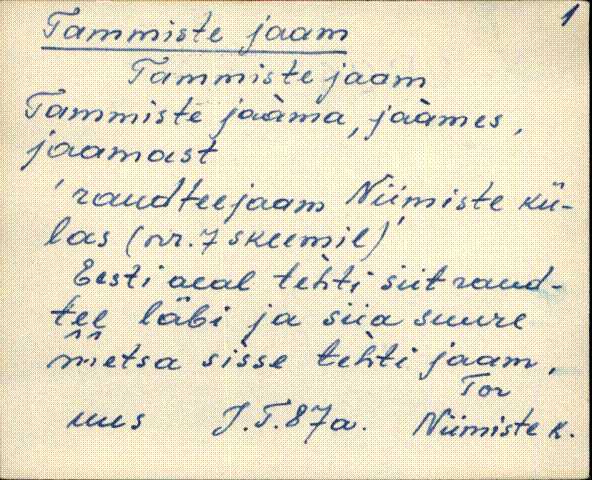 1
Tammiste jaam
Tammiste jaam
Tammiste jaàma, jaàmes,
jaamast
'raudteejaam Niimiste kü-
las (nr. 7 skeemil)'
Eesti aeal tèhti siit raud-
tee läbi ja siia suure
metsa sisse tèhti jaam,
Tor
uus J.T. 87a. Niimiste k.